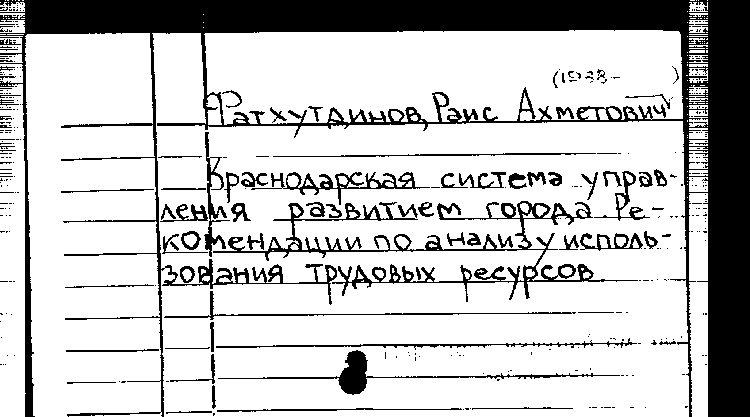 (1938- )
Фатхутдинов, Раис Ахметович
Краснодарская система управ-
ления развитием города. Ре-
комендации по анализу исполь-
зования трудовых ресурсов